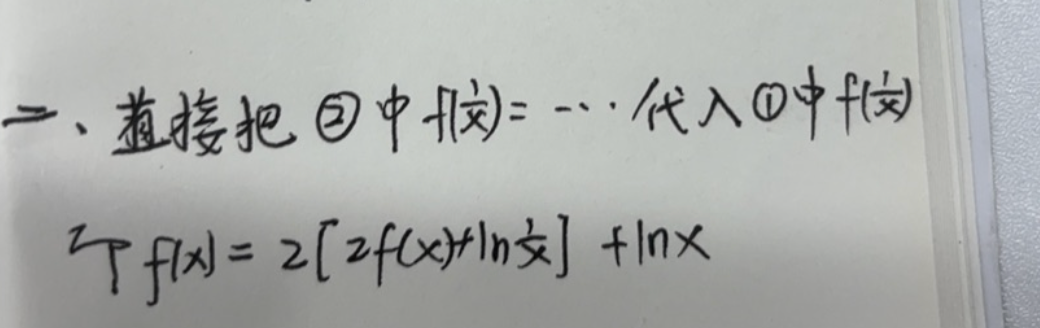 二、直接把②中f(1/x)=…代入①中f(1/x)
即f(x)=2[2f(x)+ln1/x]+lnx